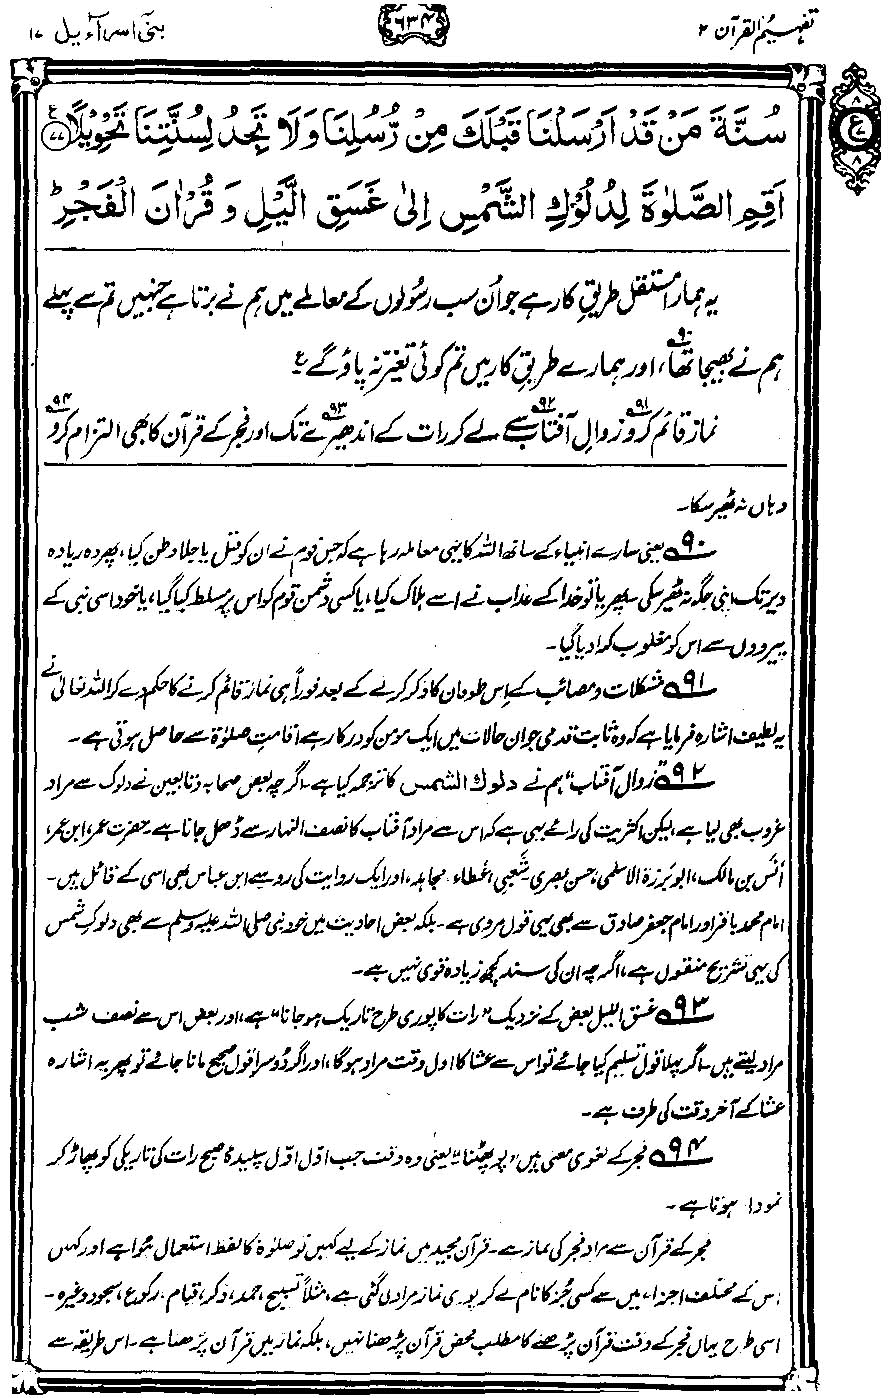 تفہیم القرآن ۲
۶۳۴
بنی اسرآءیل ۱۷
سُنَّةَ مَنْ قَدْ اَرْسَلْنَا قَبْلَكَ مِنْ رُّسُلِنَا وَلَا تَجِدُ لِسُنَّتِنَا تَحْوِيْلًا ۷۷ ع
اَقِمِ الصَّلٰوةَ لِدُلُوْكِ الشَّمْسِ اِلٰى غَسَقِ الَّيْلِ وَ قُرْاٰنَ الْفَجْرِ ؕ
۸ ع ۷ ۸
یہ ہمارا مستقل طریقِ کار ہے جو اُن سب رسُولوں کے معاملے میں ہم نے برتا ہے جنہیں تم سے پہلے
ہم نے بھیجا تھا۹۰، اور ہمارے طریقِ کار میں تم کوئی تغیّر نہ پاؤ گے ع
نماز قائم کرو۹۱ زوالِ آفتاب۹۲ سے لے کر رات کے اندھیرے۹۳ تک اور فجر کے قرآن کا بھی التزام کرو۹۴
وہاں نہ ٹھیر سکا۔
۹۰ یعنی سارے انبیاء کے ساتھ اللہ کا یہی معاملہ رہا ہے کہ جس قوم نے ان کو قتل یا جلا وطن کیا، پھر وہ زیادہ
دیر تک اپنی جگہ نہ ٹھیر سکی۔ پھر یا تو خدا کے عذاب نے اسے ہلاک کیا، یا کسی دشمن قوم کو اس پر مسلط کیا گیا، یا خود اسی نبی کے
پیرووں سے اس کو مغلوب کرا دیا گیا۔
۹۱ مشکلات و مصائب کے اِس طوفان کا ذکر کرنے کے بعد فوراً ہی نماز قائم کرنے کا حکم دے کر اللہ تعالیٰ نے
یہ لطیف اشارہ فرمایا ہے کہ وہ ثابت قدمی جو ان حالات میں ایک مومن کو درکار ہے اقامتِ صلوٰۃ سے حاصل ہوتی ہے۔
۹۲ ”زوال آفتاب“ ہم نے دلوك الشمس کا ترجمہ کیا ہے۔ اگرچہ بعض صحابہ و تابعین نے دلوک سے مراد
غروب بھی لیا ہے، لیکن اکثریت کی رائے یہی ہے کہ اس سے مراد آفتاب کا نصف النہار سے ڈھل جانا ہے۔ حضرت عمر، ابن عمر،
انَس بن مالک، ابو بَرزۃ الاسلمی، حسن بصری، شَعبی، عَطاء، مجاہد، اور ایک روایت کی رو سے ابن عباس بھی اسی کے قائل ہیں۔
امام محمد باقر اور امام جعفر صادق سے بھی یہی قول مروی ہے۔ بلکہ بعض احادیث میں خود نبی صلی اللہ علیہ وسلم سے بھی دلوکِ شمس
کی یہی تشریح منقول ہے، اگرچہ ان کی سند کچھ زیادہ قوی نہیں ہے۔
۹۳ غسق اللیل بعض کے نزدیک ”رات کا پوری طرح تاریک ہو جانا“ ہے، اور بعض اس سے نصف شب
مراد لیتے ہیں۔ اگر پہلا قول تسلیم کیا جائے تو اس سے عشا کا اول وقت مراد ہوگا، اور اگر دُوسرا قول صحیح مانا جائے تو پھر یہ اشارہ
عشا کے آخر وقت کی طرف ہے۔
۹۴ فجر کے لغوی معنی ہیں ”پَو پھٹنا“ یعنی وہ وقت جب اوّل اوّل سپیدۂ صبح رات کی تاریکی کو پھاڑ کر
نمودار ہوتا ہے۔
فجر کے قرآن سے مراد فجر کی نماز ہے۔ قرآن مجید میں نماز کے لیے کہیں تو صلوٰۃ کا لفظ استعمال ہوا ہے اور کہیں
اس کے مختلف اجزاء میں سے کسی جُز کا نام لے کر پوری نماز مراد لی گئی ہے، مثلاً تسبیح، حمد، ذکر، قیام، رکوع، سجود وغیرہ۔
اسی طرح یہاں فجر کے وقت قرآن پڑھنے کا مطلب محض قرآن پڑھنا نہیں، بلکہ نماز میں قرآن پڑھنا ہے۔ اس طریقہ سے